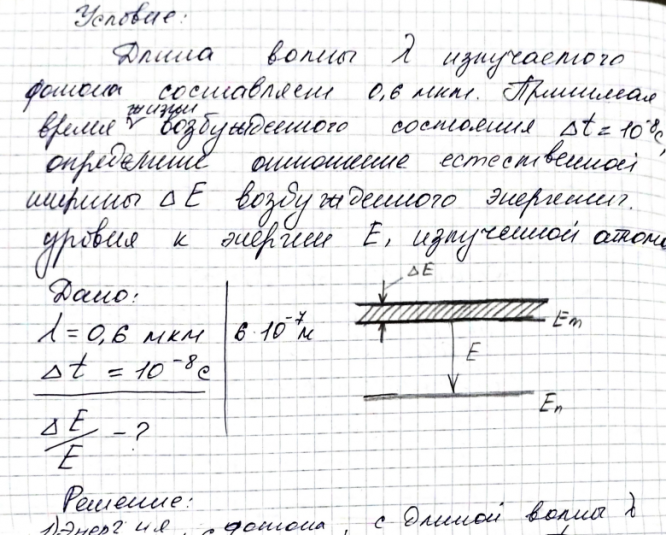 Условие:
Длина волны λ излучаемого
фотона составляет 0,6 мкм. Принимая
время жизни возбужденного состояния Δt = 10⁻⁸ с,
определите отношение естественной
ширины ΔE возбужденного энергетич.
уровня к энергии E, излученной атомо
Дано:
λ = 0,6 мкм | 6·10⁻⁷ м
Δt = 10⁻⁸ с
ΔE/E - ?
ΔE
Em
E
En
Решение:
1) Энергия фотона, с длиной волны λ